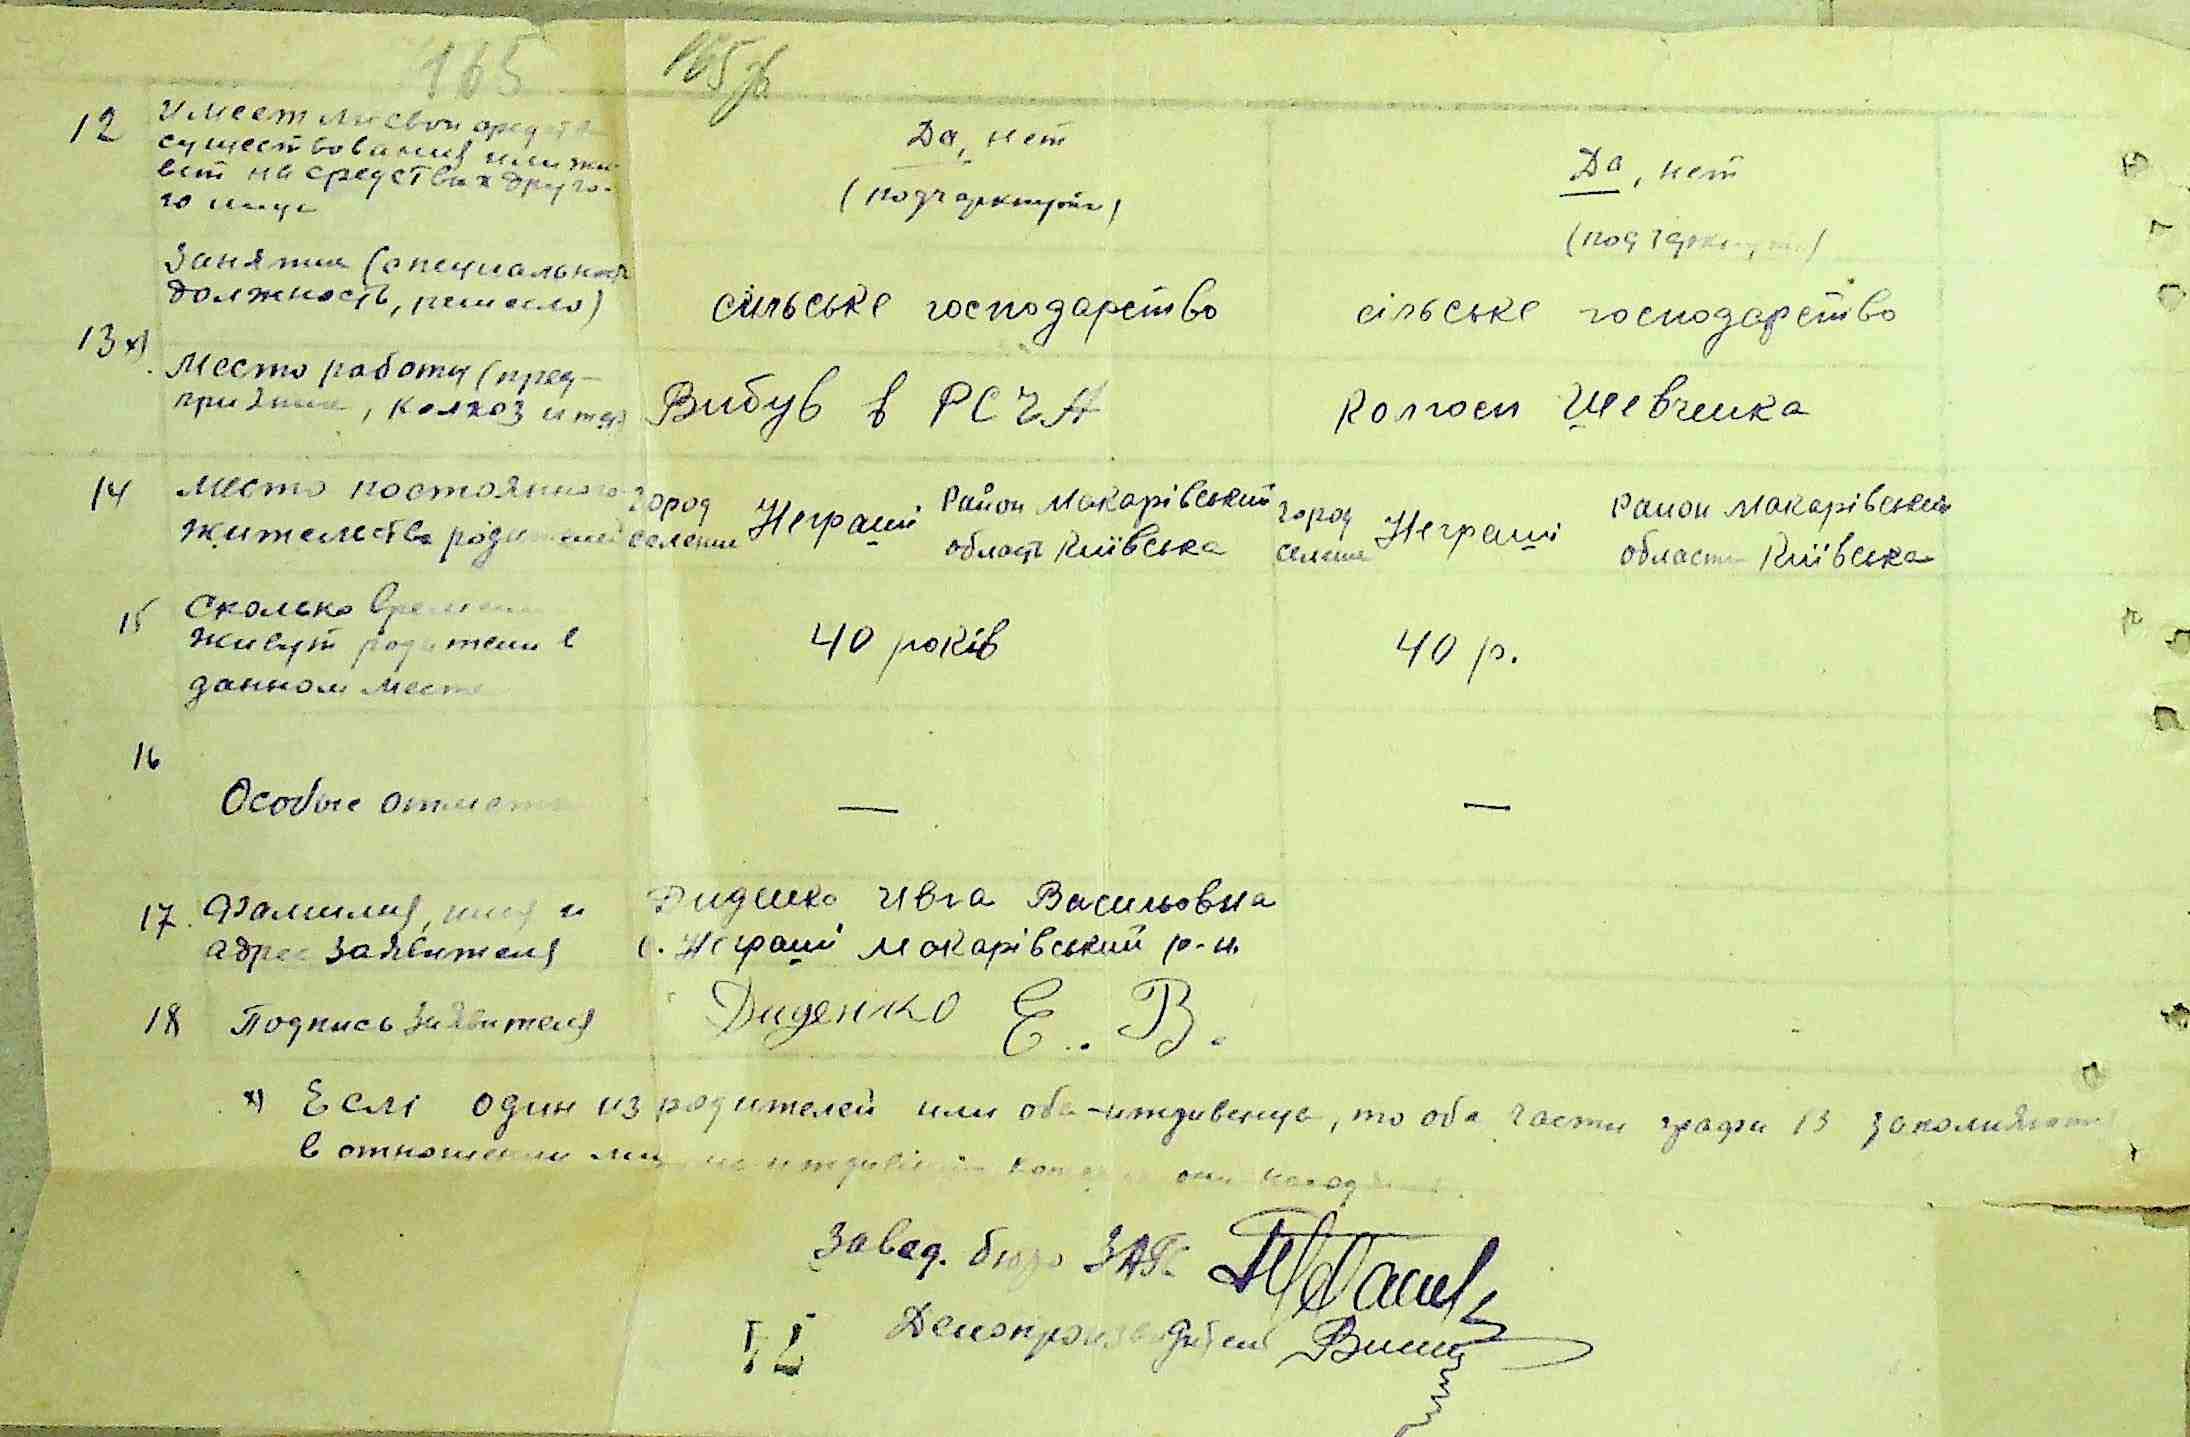 165
165 зв
12 Имеет ли свои средства Да, нет Да, нет
существования или жи-
вет на средствах друго- (подчеркнуть) (подчеркнуть)
го лица
Занятия (специальность
должность, ремесло) сільське господарство сільське господарство
13 x)
Место работы (пред-
приятие, колхоз и т.д.) Вибув в РСЧА Колгосп Шевченка
14 Место постоянного город Неграші Район Макарівський город Неграші Район Макарівський
жительства родителей селение область Київська селение область Київська
15 Сколько времени
живут родители в 40 років 40 р.
данном месте
16
Особые отметки — —
17. Фамилия, имя и Диденко Ивга Васильовна
адрес заявителя с. Неграші Макарівський р-н.
18 Подпись заявителя Диденко Е. В.
x) Еслі один из родителей или оба - иждивенцы, то оба части графи 13 заполняются
в отношении лиц на иждивении которых они находятся.
Завед. бюро ЗАГС
Делопроизводитель